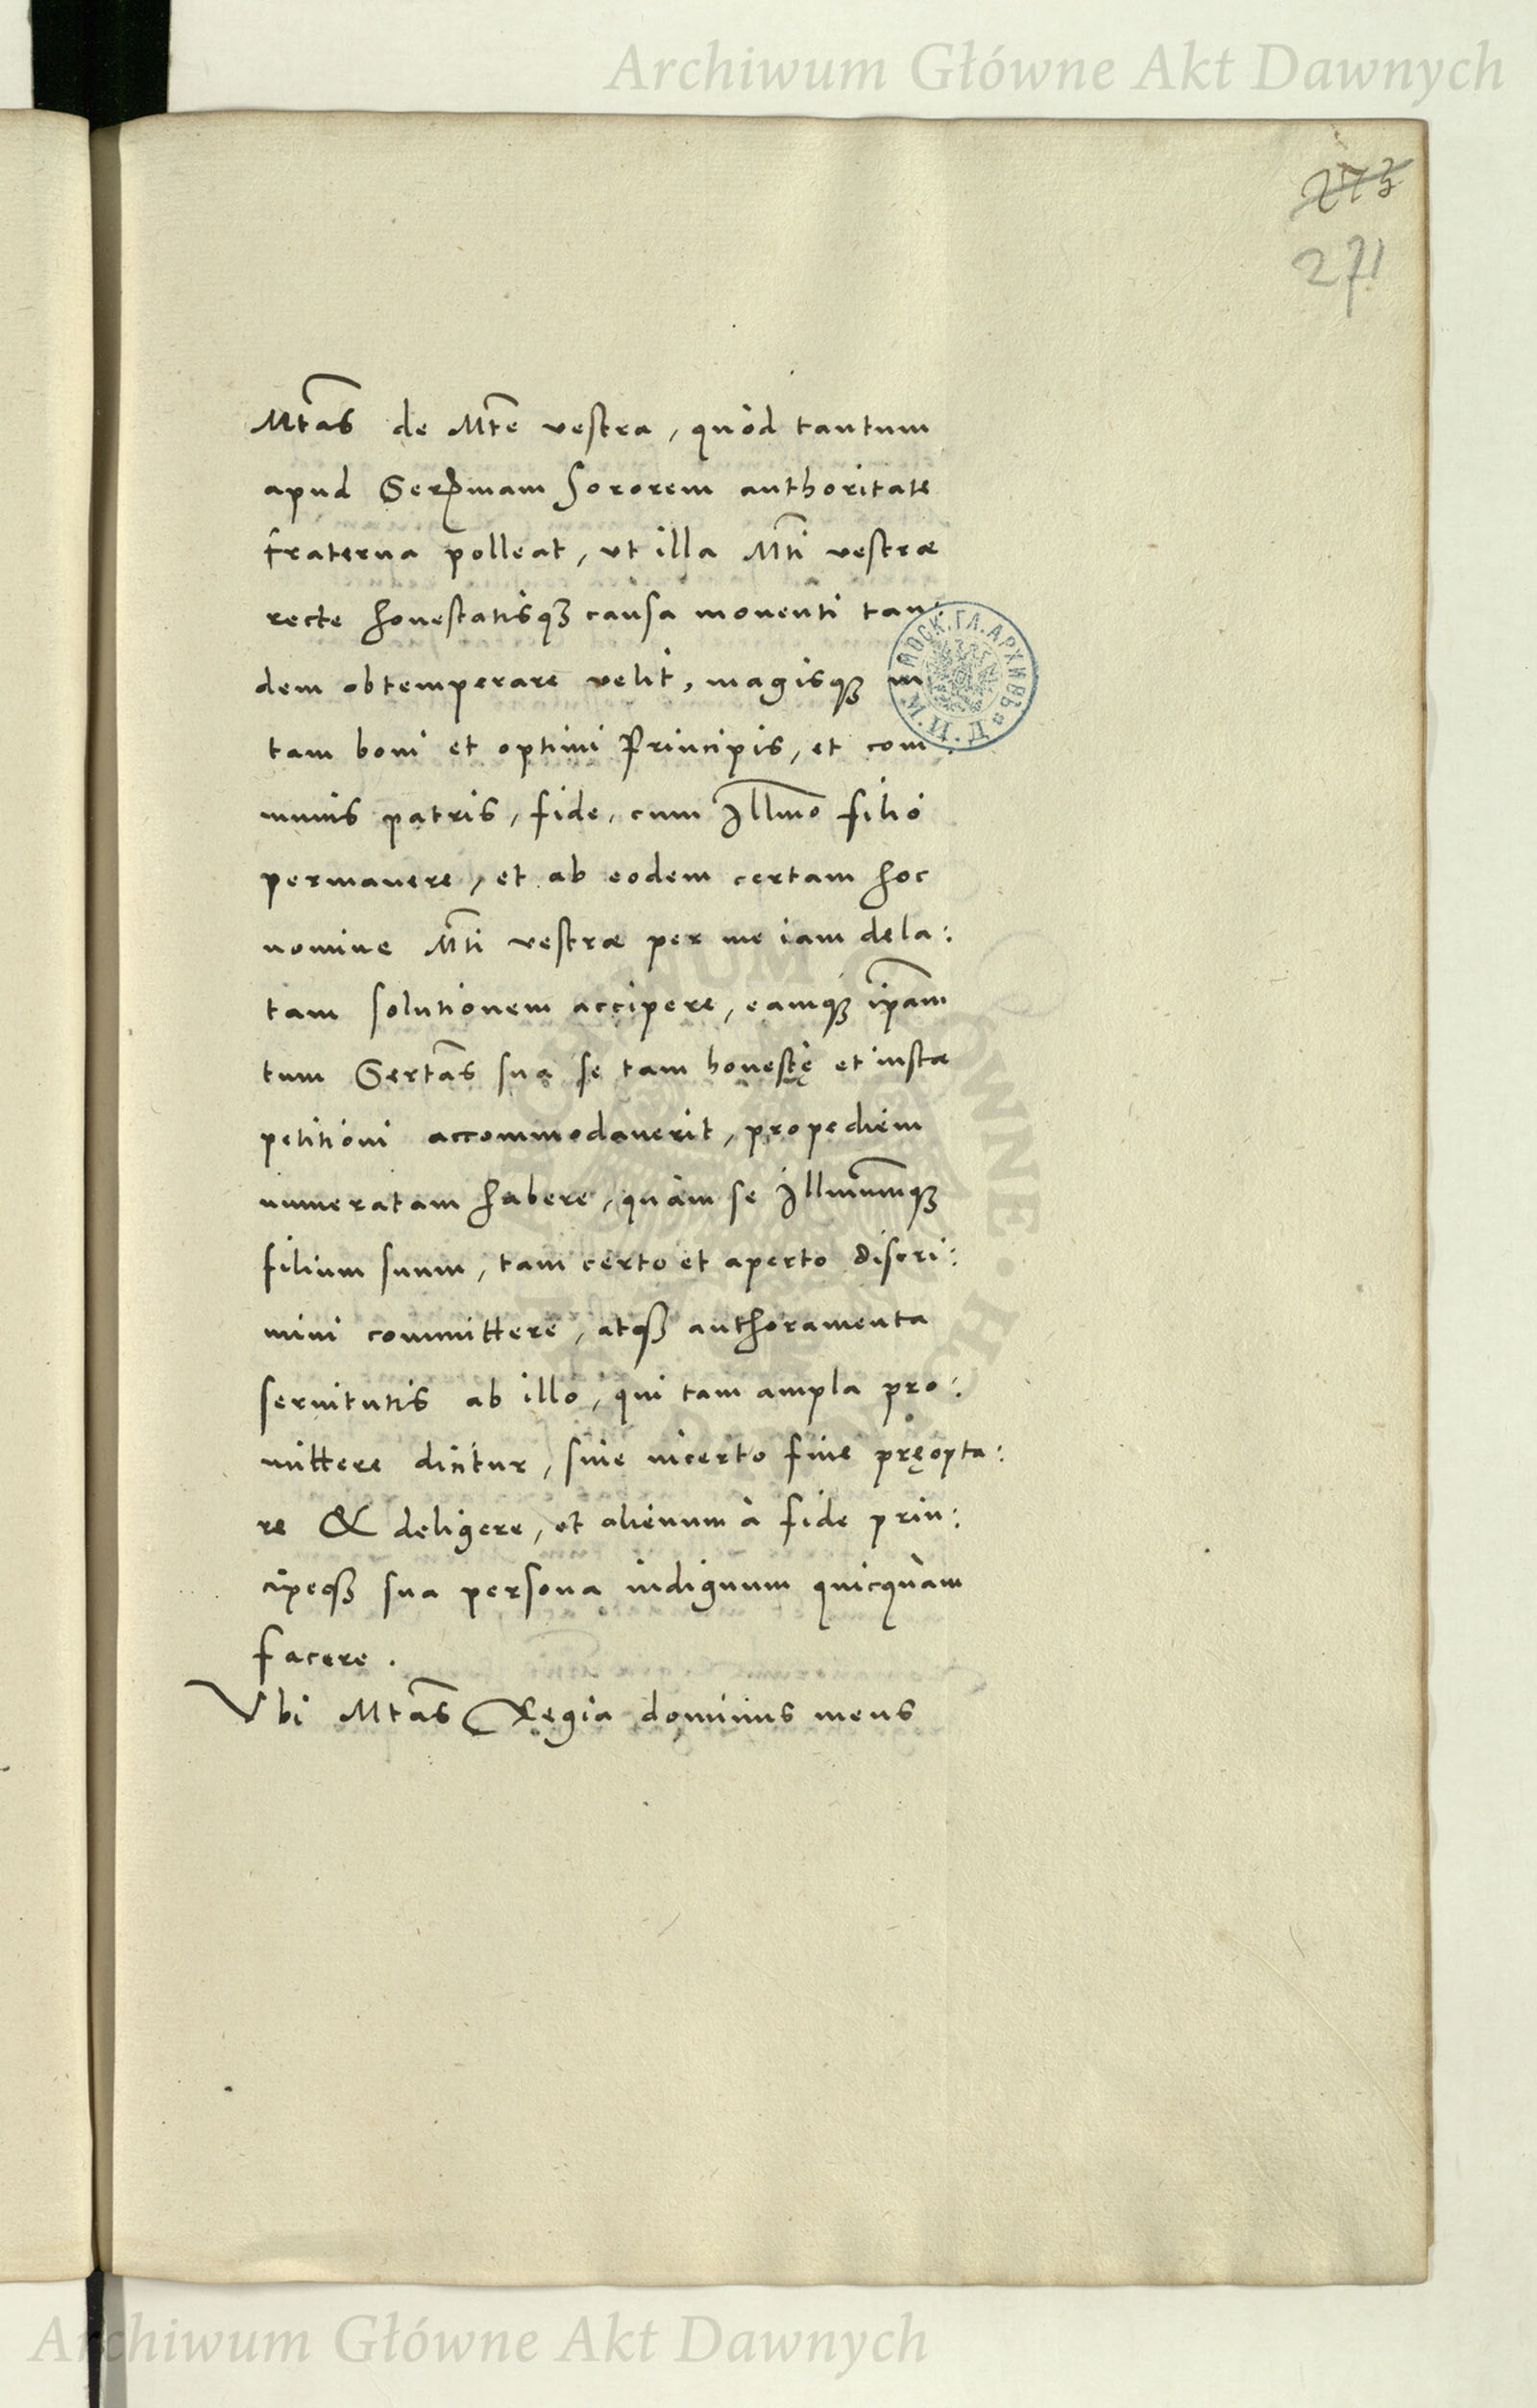 Archiwum Główne Akt Dawnych
273
271
Mtas de Mte vestra, quòd tantum
apud Serꝑmam Sororem authoritate
fraterna polleat, ut illa Mti vestræ
recte honestatisqꝫ causa monenti tan:
dem obtemperare velit, magisqꝫ in
tam boni et optimi Principis, et com:
munis patris, fide, cum Illmo filio
permanere, et ab eodem certam hoc
nomine Mti vestræ per me iam dela:
tam solutionem accipere, eamqꝫ ipam
tum Sertas sua se tam honestę et iustæ
petitioni accommodauerit, propediem
numeratam habere, quàm se Illmumqꝫ
filium suum, tam certo et aperto discri:
mini committere, atqꝫ authoramenta
seruitutis ab illo, qui tam ampla pro:
mittere dicitur, sine incerto fine pręopta:
re & deligere, et alienum à fide prin:
cipeqꝫ sua persona indignum quicquàm
facere.
Vbi Mtas Regia dominus meus
Archiwum Główne Akt Dawnych